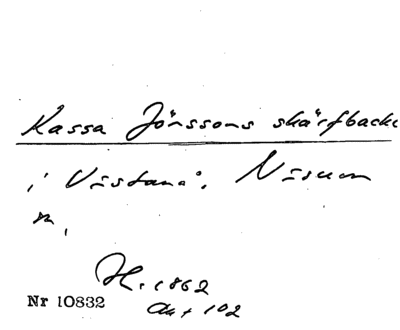 Kassa Jönssons skärfbacke
i Vistana°. Näsum
sn,
H. 1862
Akt 102
Nr 10832